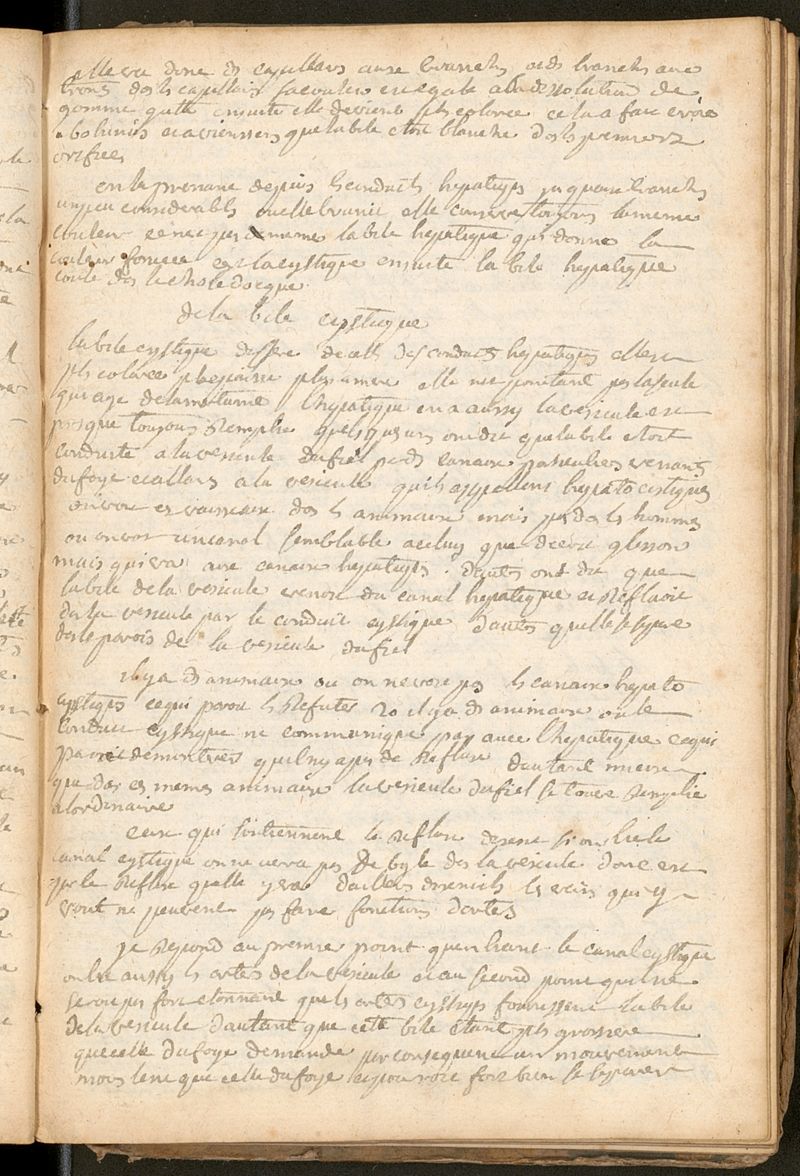 elle va donc des capillaires aux branches et des branches aux
troncs dans les capillaires sa couleur est egale a la dissolution de
gomme gutte ensuite elle devient plus colorée cela a fait croire
a bohnius et a vieussens que la bile etoit blanche dans les premiers
orifices
en la prenant depuis les conduits hepatiques jusquaux branches
un peu considerables ou elle brunit elle conserve toujours la meme
couleur ce nest pas de meme la bile hepatique qui donne la
couleur foncee est la cystique ensuite la bile hepatique
coule dans le choledocque
de la bile cystique
la bile cystique differe de celle des conduits hepatiques elle est
plus colorée plus epaisse plus amere elle nest pourtant pas la seule
qui aye de lamertume lhepatique en a aussy la vesicule est
presque toujours remplie quelques uns ont dit que la bile etoit
conduite a la vesicule du fiel par des canaux particuliers venants
du foye et allants a la vesicule quils appellent hepato cistiques
on voit ces vaisseaux dans les animaux mais pas dans les hommes
ou on voit un canal semblable a celuy que decrit glisson
mais qui va aux canaux hepatiques. dautres ont dit que
la bile de la vesicule venoit du canal hepatique et refluoit
dans la vesicule par le conduit cystique dautres quelle se separe
dans les parois de la vesicule du fiel
il y a des animaux ou on ne voit pas les canaux hepato
cystiques ce qui paroit les refuter 2o il y a des animaux ou le
conduit cystique ne communique pas avec lhepatique ce qui
paroit demontrer quil ny a pas de reflux dautant mieux
que dans ces memes animaux la vesicule du fiel se trouve remplie
a lordinaire
ceux qui soutiennent le reflux disent si on lie le
canal cystique on ne verra pas de byle dans la vesicule donc cest
par le reflux quelle y va dailleurs disent ils les vais qui y
vont ne peuvent pas faire fonction darteres
je repond au premier point quen liant le canal cystique
on lie aussy les arteres de la vesicule et au second point quil ne
seroit pas fort etonnant que les arteres cystiques fournissent la bile
de la vesicule dautant que cette bile etant plus grossiere
que celle du foye demande par consequent un mouvement
moins lent que celle du foye et pourroit fort bien se separer